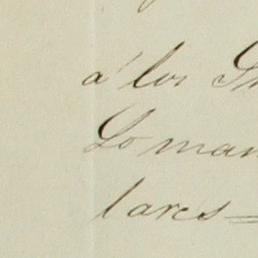 á los
Lo man
lares